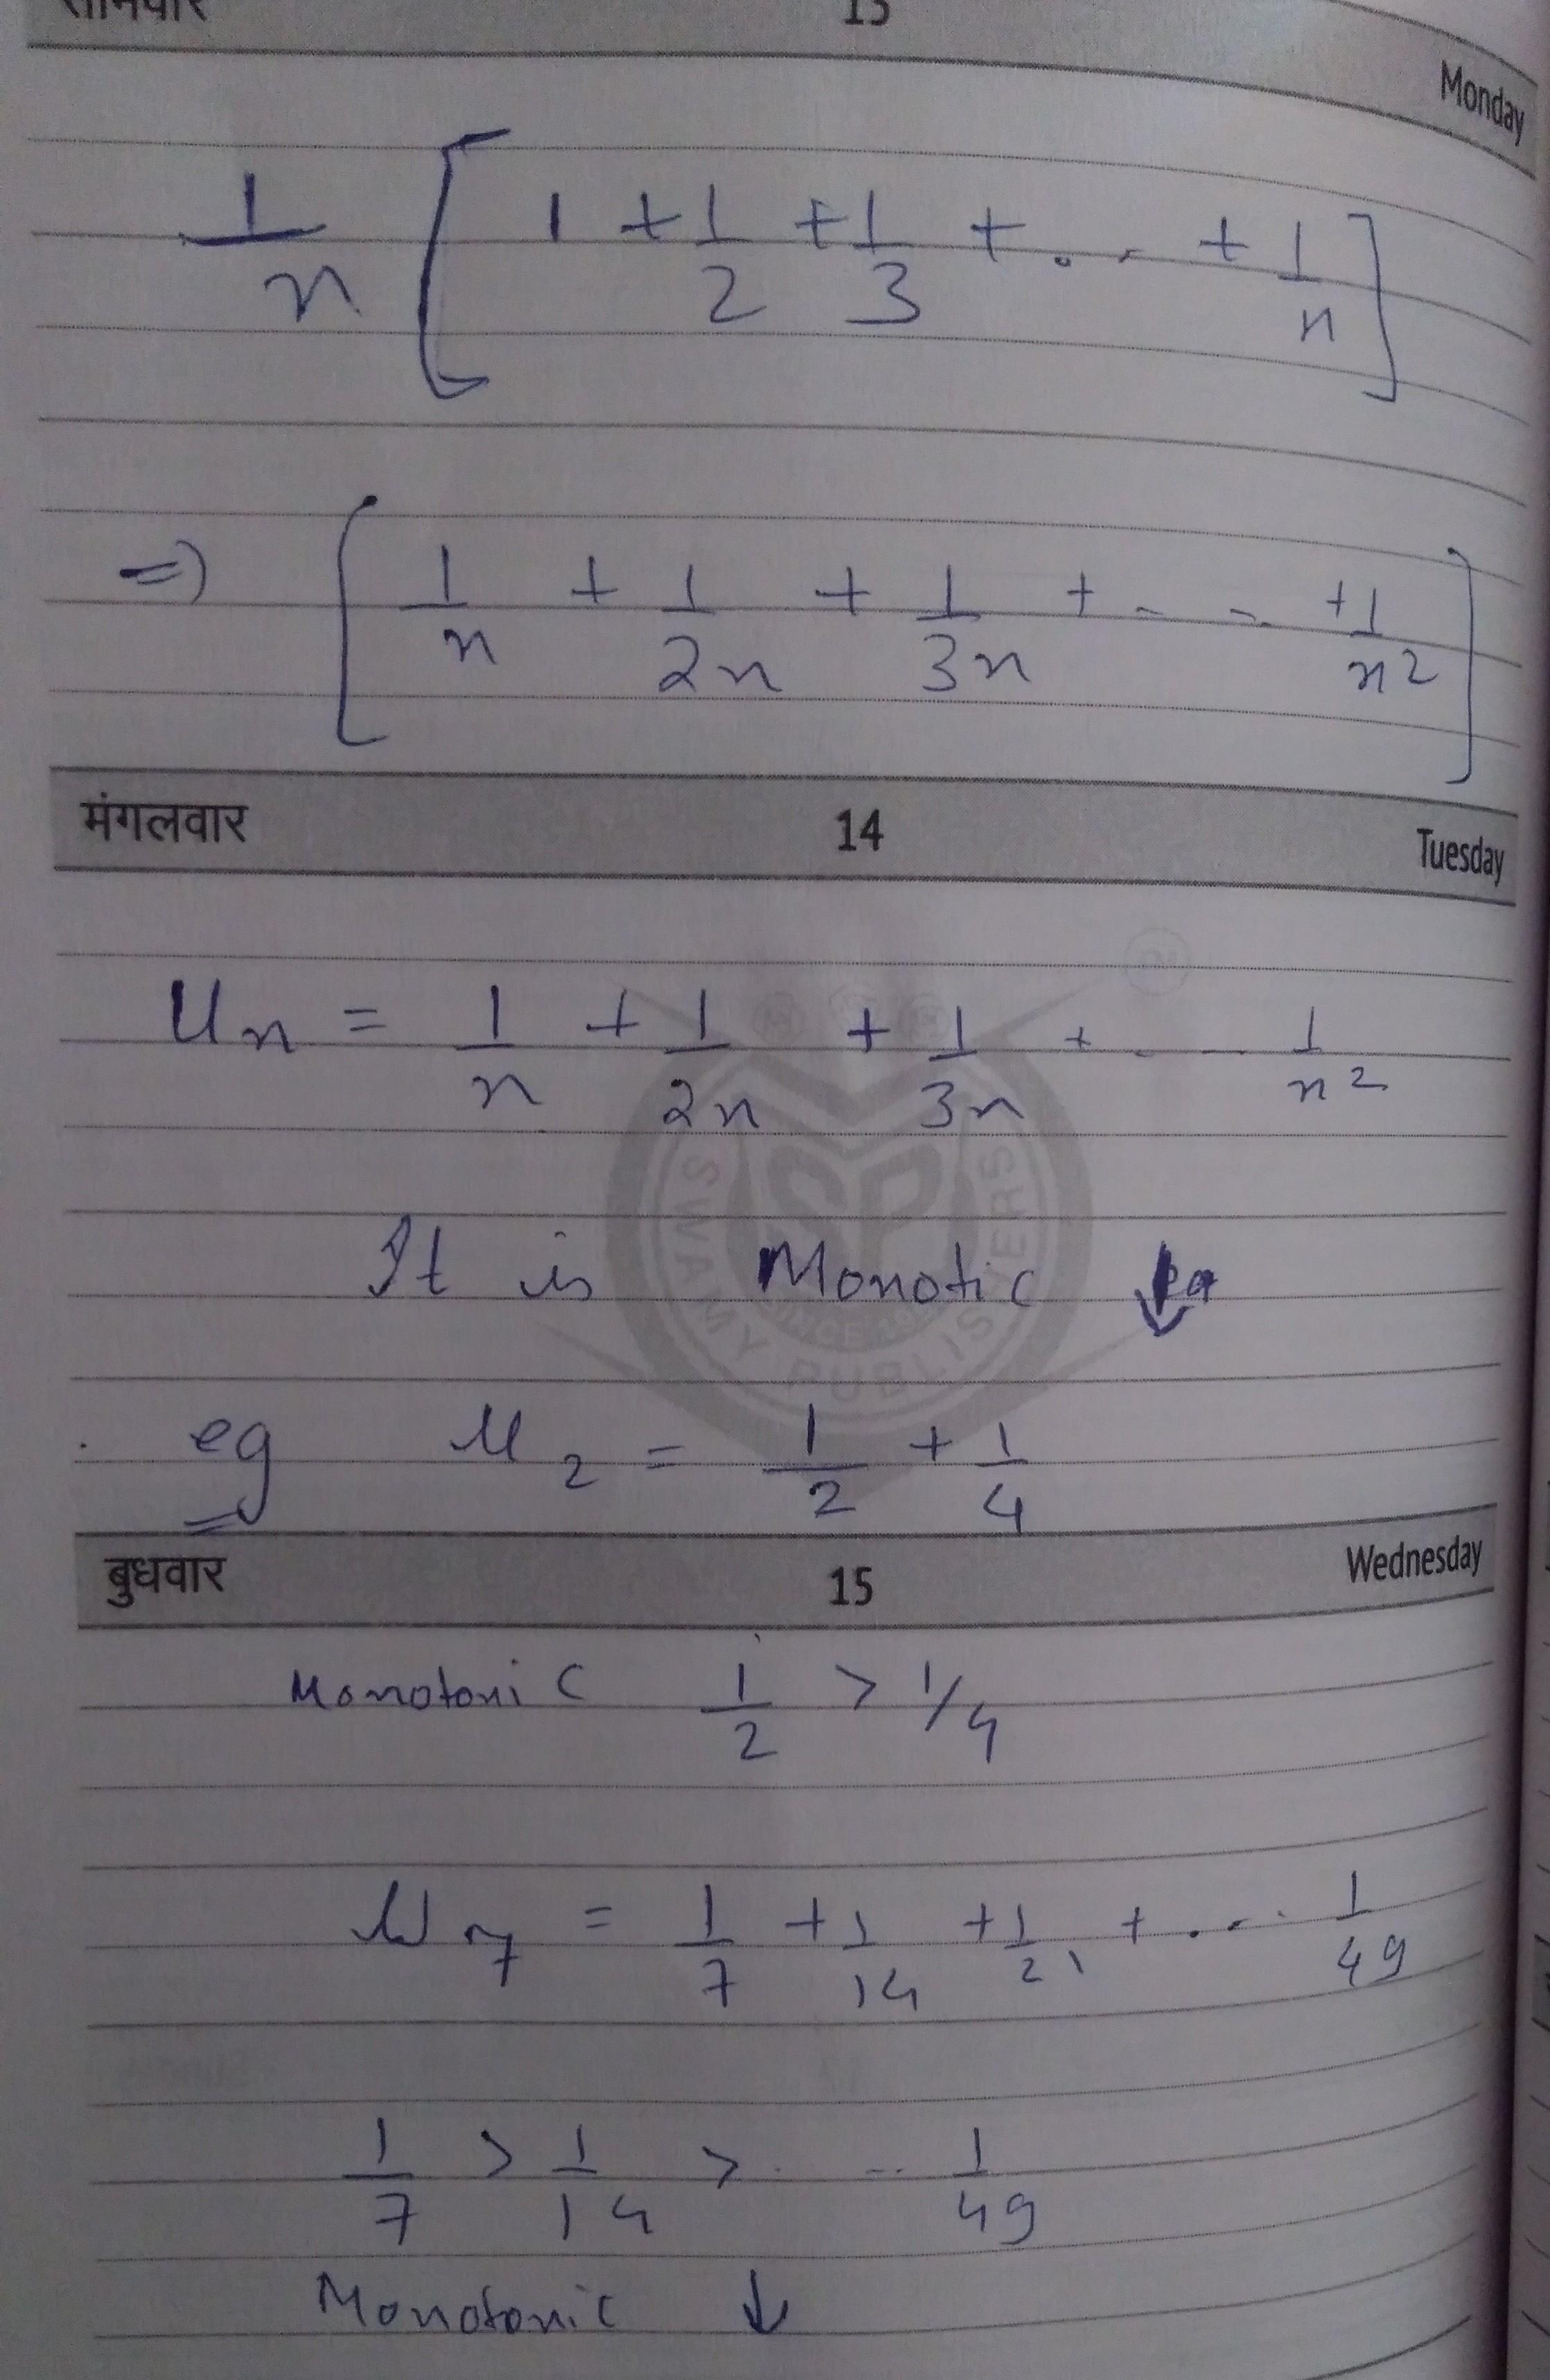 13
Monday
1/n [ 1 + 1/2 + 1/3 + . . . + 1/n ]
=> [ 1/n + 1/2n + 1/3n + - - - + 1/n² ]
मंगलवार 14 Tuesday
Un = 1/n + 1/2n + 1/3n + . - - 1/n²
It is Monotic ↓
eg U2 = 1/2 + 1/4
बुधवार 15 Wednesday
Monotonic 1/2 > 1/4
U7 = 1/7 + 1/14 + 1/21 + . . . 1/49
1/7 > 1/14 > . - - 1/49
Monotonic ↓